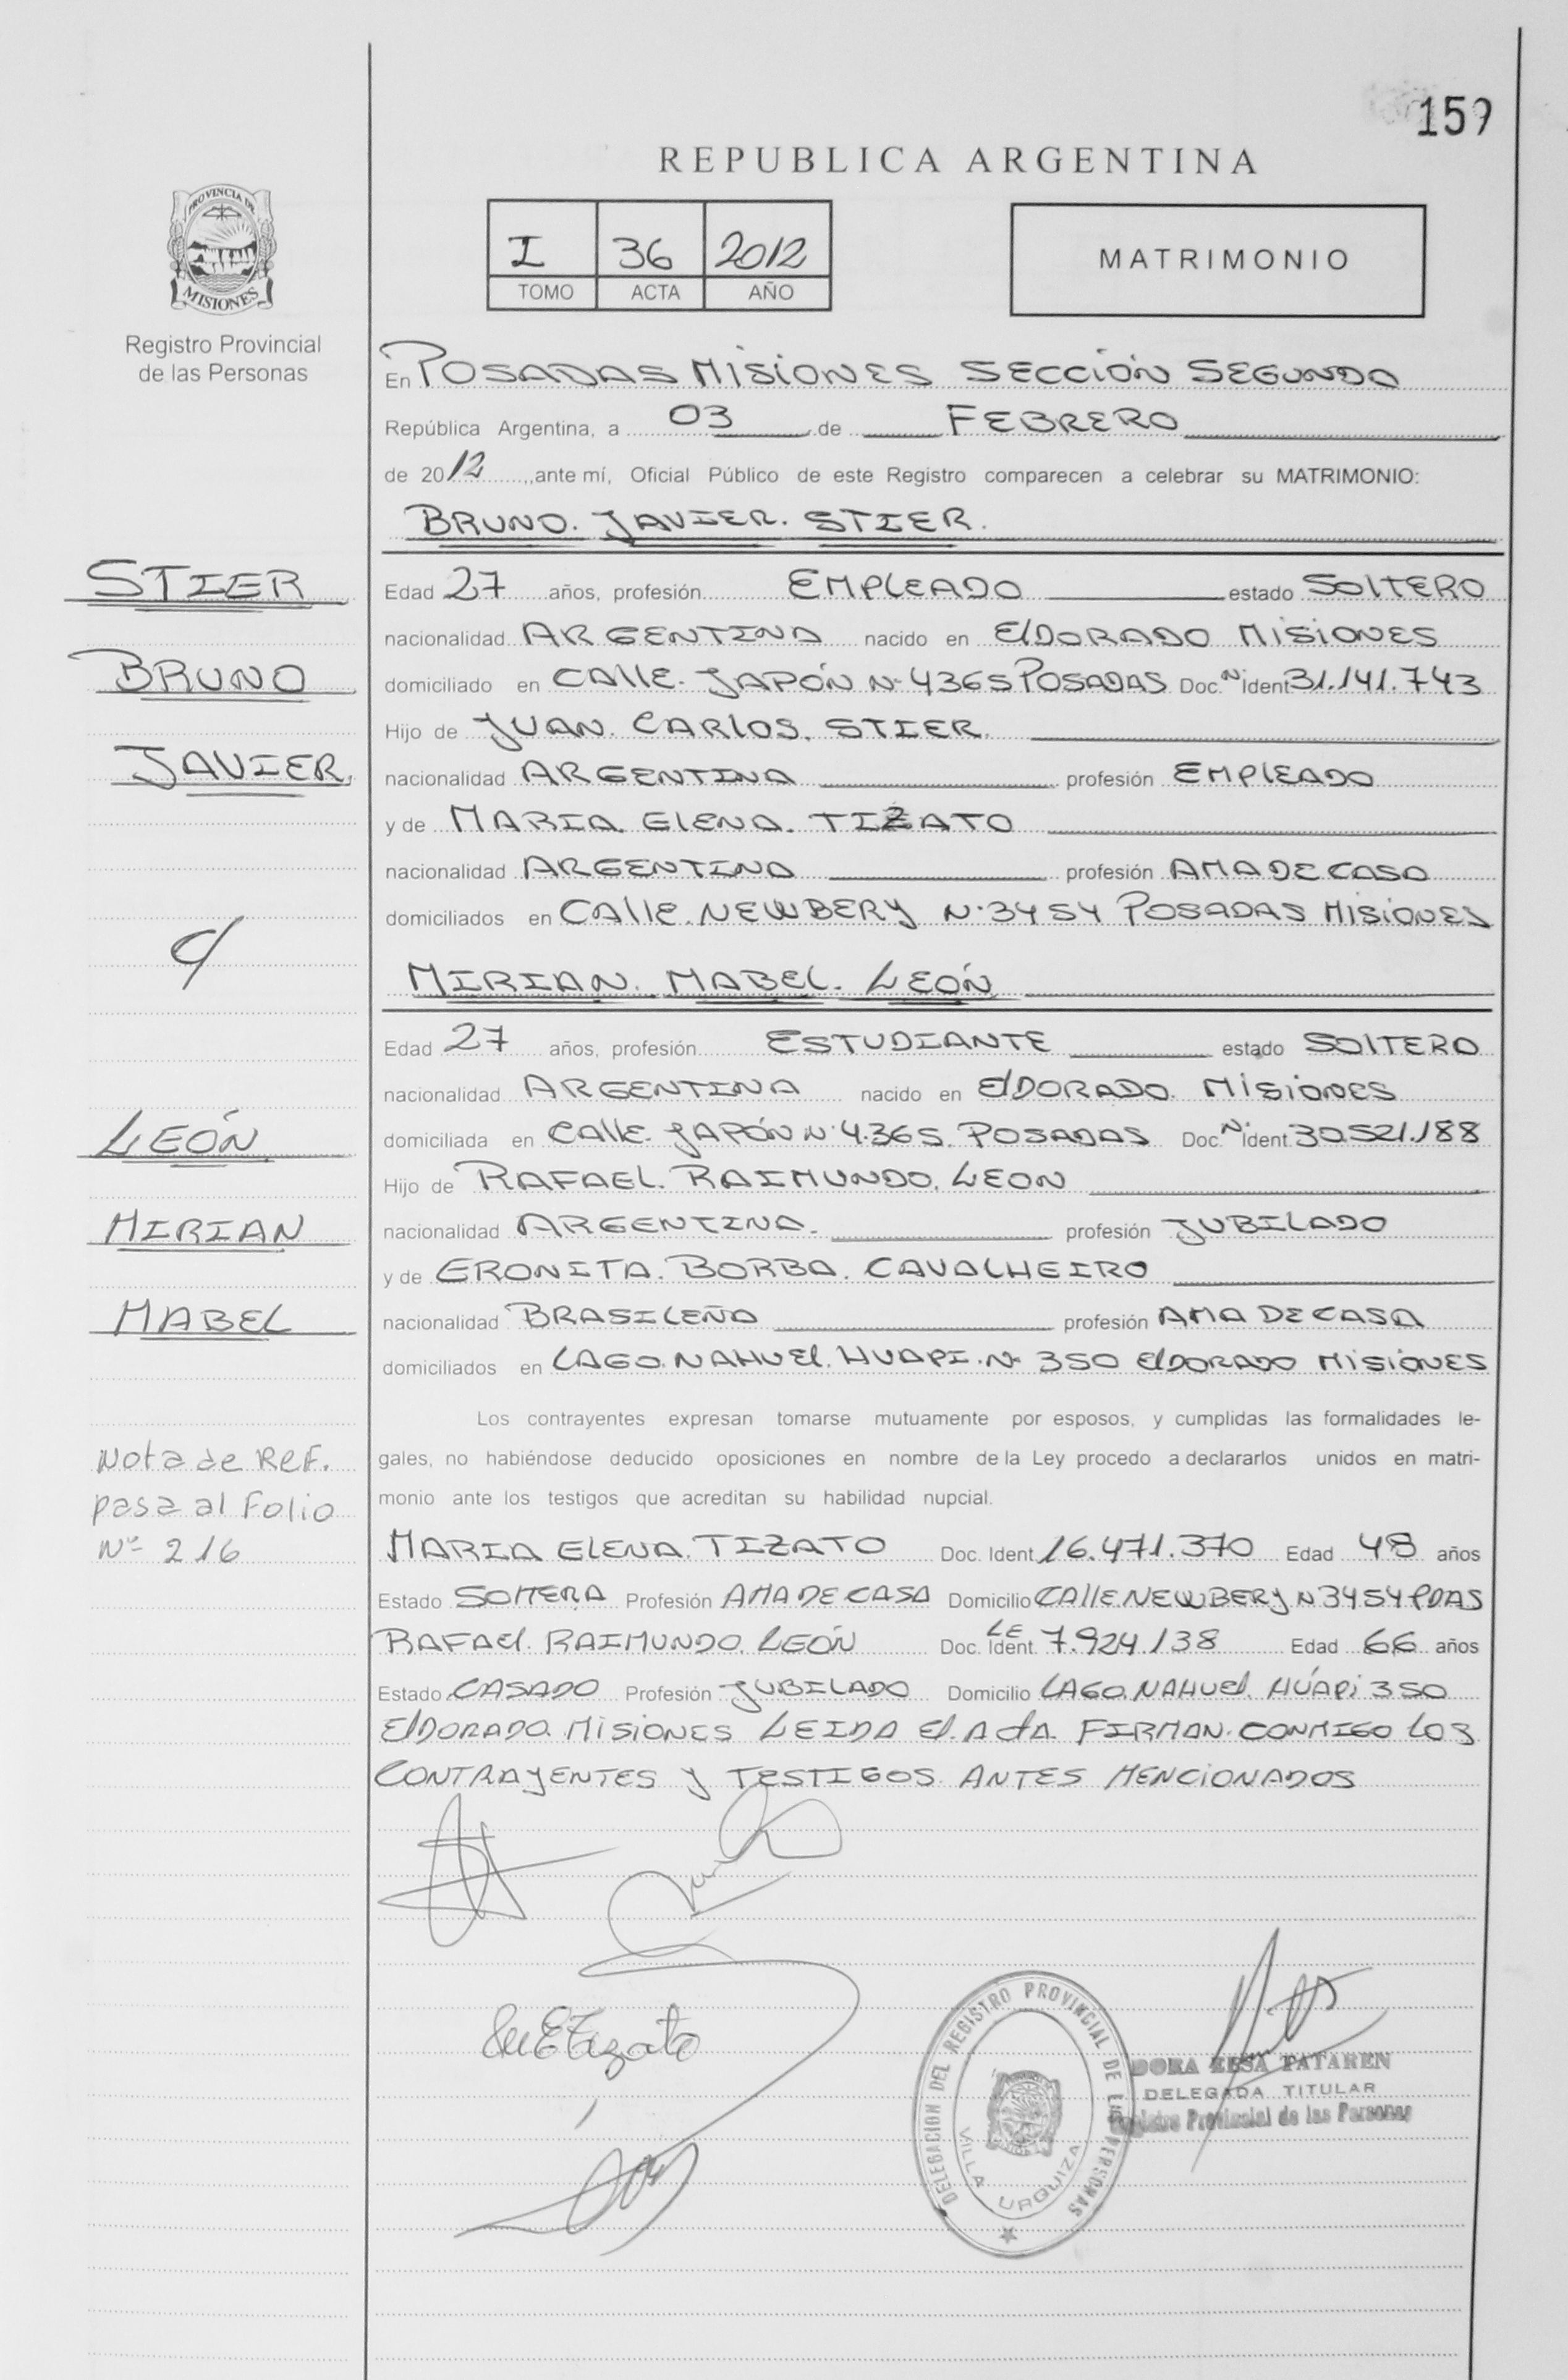 159
REPUBLICA ARGENTINA
PROVINCIA DE
MISIONES
Registro Provincial
de las Personas
I 36 2012
TOMO ACTA AÑO
MATRIMONIO
En POSADAS MISIONES SECCIÓN SEGUNDA
República Argentina, a 03 de FEBRERO
de 2012, ante mí, Oficial Público de este Registro comparecen a celebrar su MATRIMONIO:
BRUNO. JAVIER. STIER.
STIER
BRUNO
JAVIER
Edad 27 años, profesión EMPLEADO estado SOLTERO
nacionalidad ARGENTINA nacido en ELDORADO MISIONES
domiciliado en CALLE. JAPÓN N° 4365 POSADAS Doc. N° Ident 31.141.743
Hijo de JUAN. CARLOS. STIER.
nacionalidad ARGENTINA profesión EMPLEADO
y de MARIA ELENA. TIZATO
nacionalidad ARGENTINA profesión AMA DE CASA
domiciliados en CALLE. NEWBERY N° 3454 POSADAS MISIONES
C/
MIRIAN. MABEL. LEÓN
Edad 27 años, profesión ESTUDIANTE estado SOLTERA
nacionalidad ARGENTINA nacido en ELDORADO. MISIONES
LEÓN
MIRIAN
MABEL
domiciliada en CALLE. JAPÓN N° 4.365. POSADAS Doc. N° Ident. 30.521.188
Hijo de RAFAEL. RAIMUNDO. LEON
nacionalidad ARGENTINA. profesión JUBILADO
y de ERONITA. BORBA. CAVALHEIRO
nacionalidad BRASILEÑA profesión AMA DE CASA
domiciliados en LAGO. NAHUEL. HUAPI. N° 350 ELDORADO MISIONES
Los contrayentes expresan tomarse mutuamente por esposos, y cumplidas las formalidades le-
gales, no habiéndose deducido oposiciones en nombre de la Ley procedo a declararlos unidos en matri-
monio ante los testigos que acreditan su habilidad nupcial.
Nota de Ref.
pasa al Folio
N° 216
MARIA ELENA. TIZATO Doc. Ident. 16.471.370 Edad 48 años
Estado SOLTERA Profesión AMA DE CASA Domicilio CALLE NEWBERY N 3454 PDAS
RAFAEL. RAIMUNDO. LEÓN Doc. Ident. LE 7.924.138 Edad 66 años
Estado CASADO Profesión JUBILADO Domicilio LAGO. NAHUEL. HÚAPI 350
ELDORADO. MISIONES LEIDA EL ACTA. FIRMAN. CONMIGO LOS
CONTRAYENTES Y TESTIGOS. ANTES MENCIONADOS
DELEGACION DEL REGISTRO PROVINCIAL DE LAS PERSONAS
VILLA URQUIZA
DORA TATAREN
DELEGADA TITULAR
Registro Provincial de las Personas